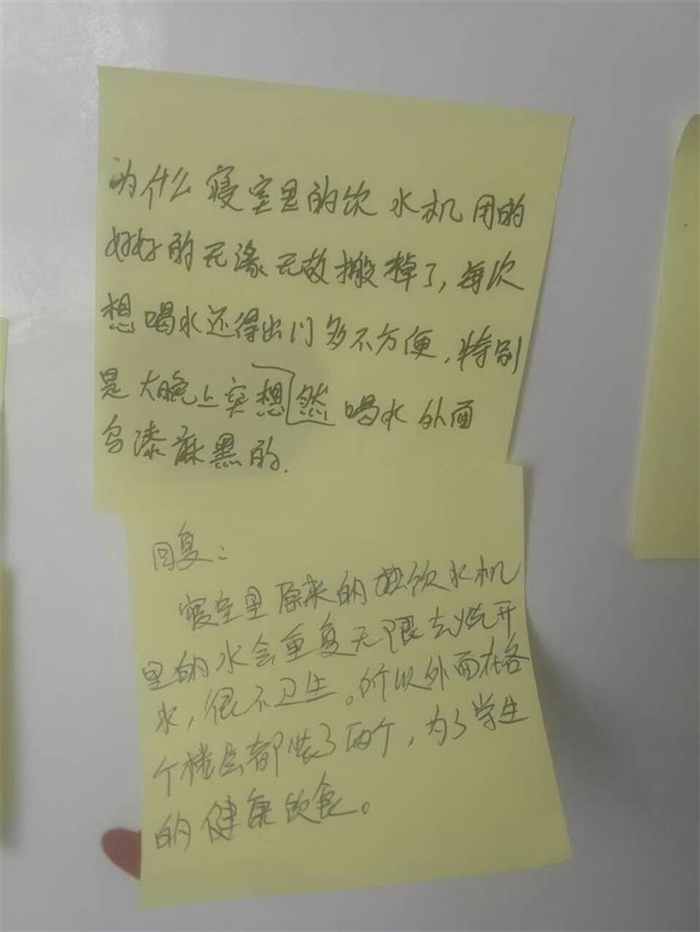 为什么寝室里的饮水机用的
好好的无缘无故搬掉了,每次
想喝水还得出门多不方便,特别
是大晚上突想然喝水外面
乌漆麻黑的.
回复:
寝室里原来的饮水机
里的水会重复无限去烧开
水,很不卫生。所以外面在各
个楼层都装了两个,为了学生
的健康饮食。